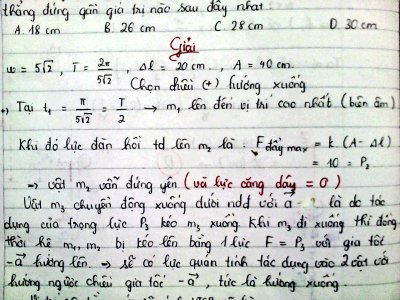 thẳng đứng gần giá trị nào sau đây nhất
A. 18 cm B. 26 cm C. 28 cm D. 30 cm
Giải
ω = 5√2 , T = 2π/5√2 , Δl = 20 cm , A = 40 cm.
Chọn chiều (+) hướng xuống
+) Tại t₁ = π/5√2 = T/2 → m₁ lên đến vị trí cao nhất (biên âm)
Khi đó lực đàn hồi td lên m₂ là : F đẩy max = k (A - Δl)
= 10 = P₂
⇒ vật m₂ vẫn đứng yên (và lực căng dây = 0)
Vật m₃ chuyển động xuống dưới ndđ với a là do tác
dụng của trọng lực P₃ kéo m₃ xuống. Khi m₃ đi xuống thì đồng
thời hệ m₁, m₂ bị kéo lên bằng 1 lực F = P₃ với gia tốc
-a hướng lên → sẽ có lực quán tính tác dụng vào 2 vật với
hướng ngược chiều gia tốc -a , tức là hướng xuống.